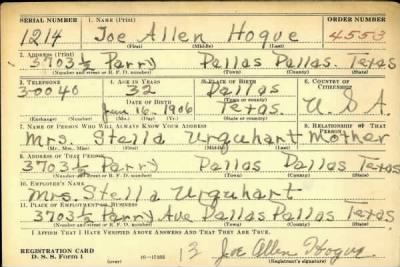 SERIAL NUMBER 1. NAME (Print) ORDER NUMBER
1214 Joe Allen Hogue 4553
(First) (Middle) (Last)
2. ADDRESS (Print)
3703 ½ Parry Dallas Dallas. Texas
(Number and street or R. F. D. number) (Town) (County) (State)
3. TELEPHONE 4. AGE IN YEARS 5. PLACE OF BIRTH 6. COUNTRY OF CITIZENSHIP
30040 32 Dallas
DATE OF BIRTH (Town or county)
16, 1906 Texas. U.S.A.
(Exchange) (Number) (Mo.) (Day) (Yr.) (State or country)
7. NAME OF PERSON WHO WILL ALWAYS KNOW YOUR ADDRESS 8. RELATIONSHIP OF THAT PERSON
Mrs. Stella Urquhart Mother
(Mr., Mrs., Miss) (First) (Middle) (Last)
9. ADDRESS OF THAT PERSON
3703 ½ Parry Dallas Dallas Texas
(Number and street or R. F. D. number) (Town) (County) (State)
10. EMPLOYER'S NAME
Mrs. Stella Urquhart
11. PLACE OF EMPLOYMENT OR BUSINESS
3703 ½ Parry Ave Dallas Dallas Texas
(Number and street or R. F. D. number) (Town) (County) (State)
I AFFIRM THAT I HAVE VERIFIED ABOVE ANSWERS AND THAT THEY ARE TRUE.
REGISTRATION CARD
D. S. S. FORM 1 (over) 13 Joe Allen Hogue
(Registrant's signature)